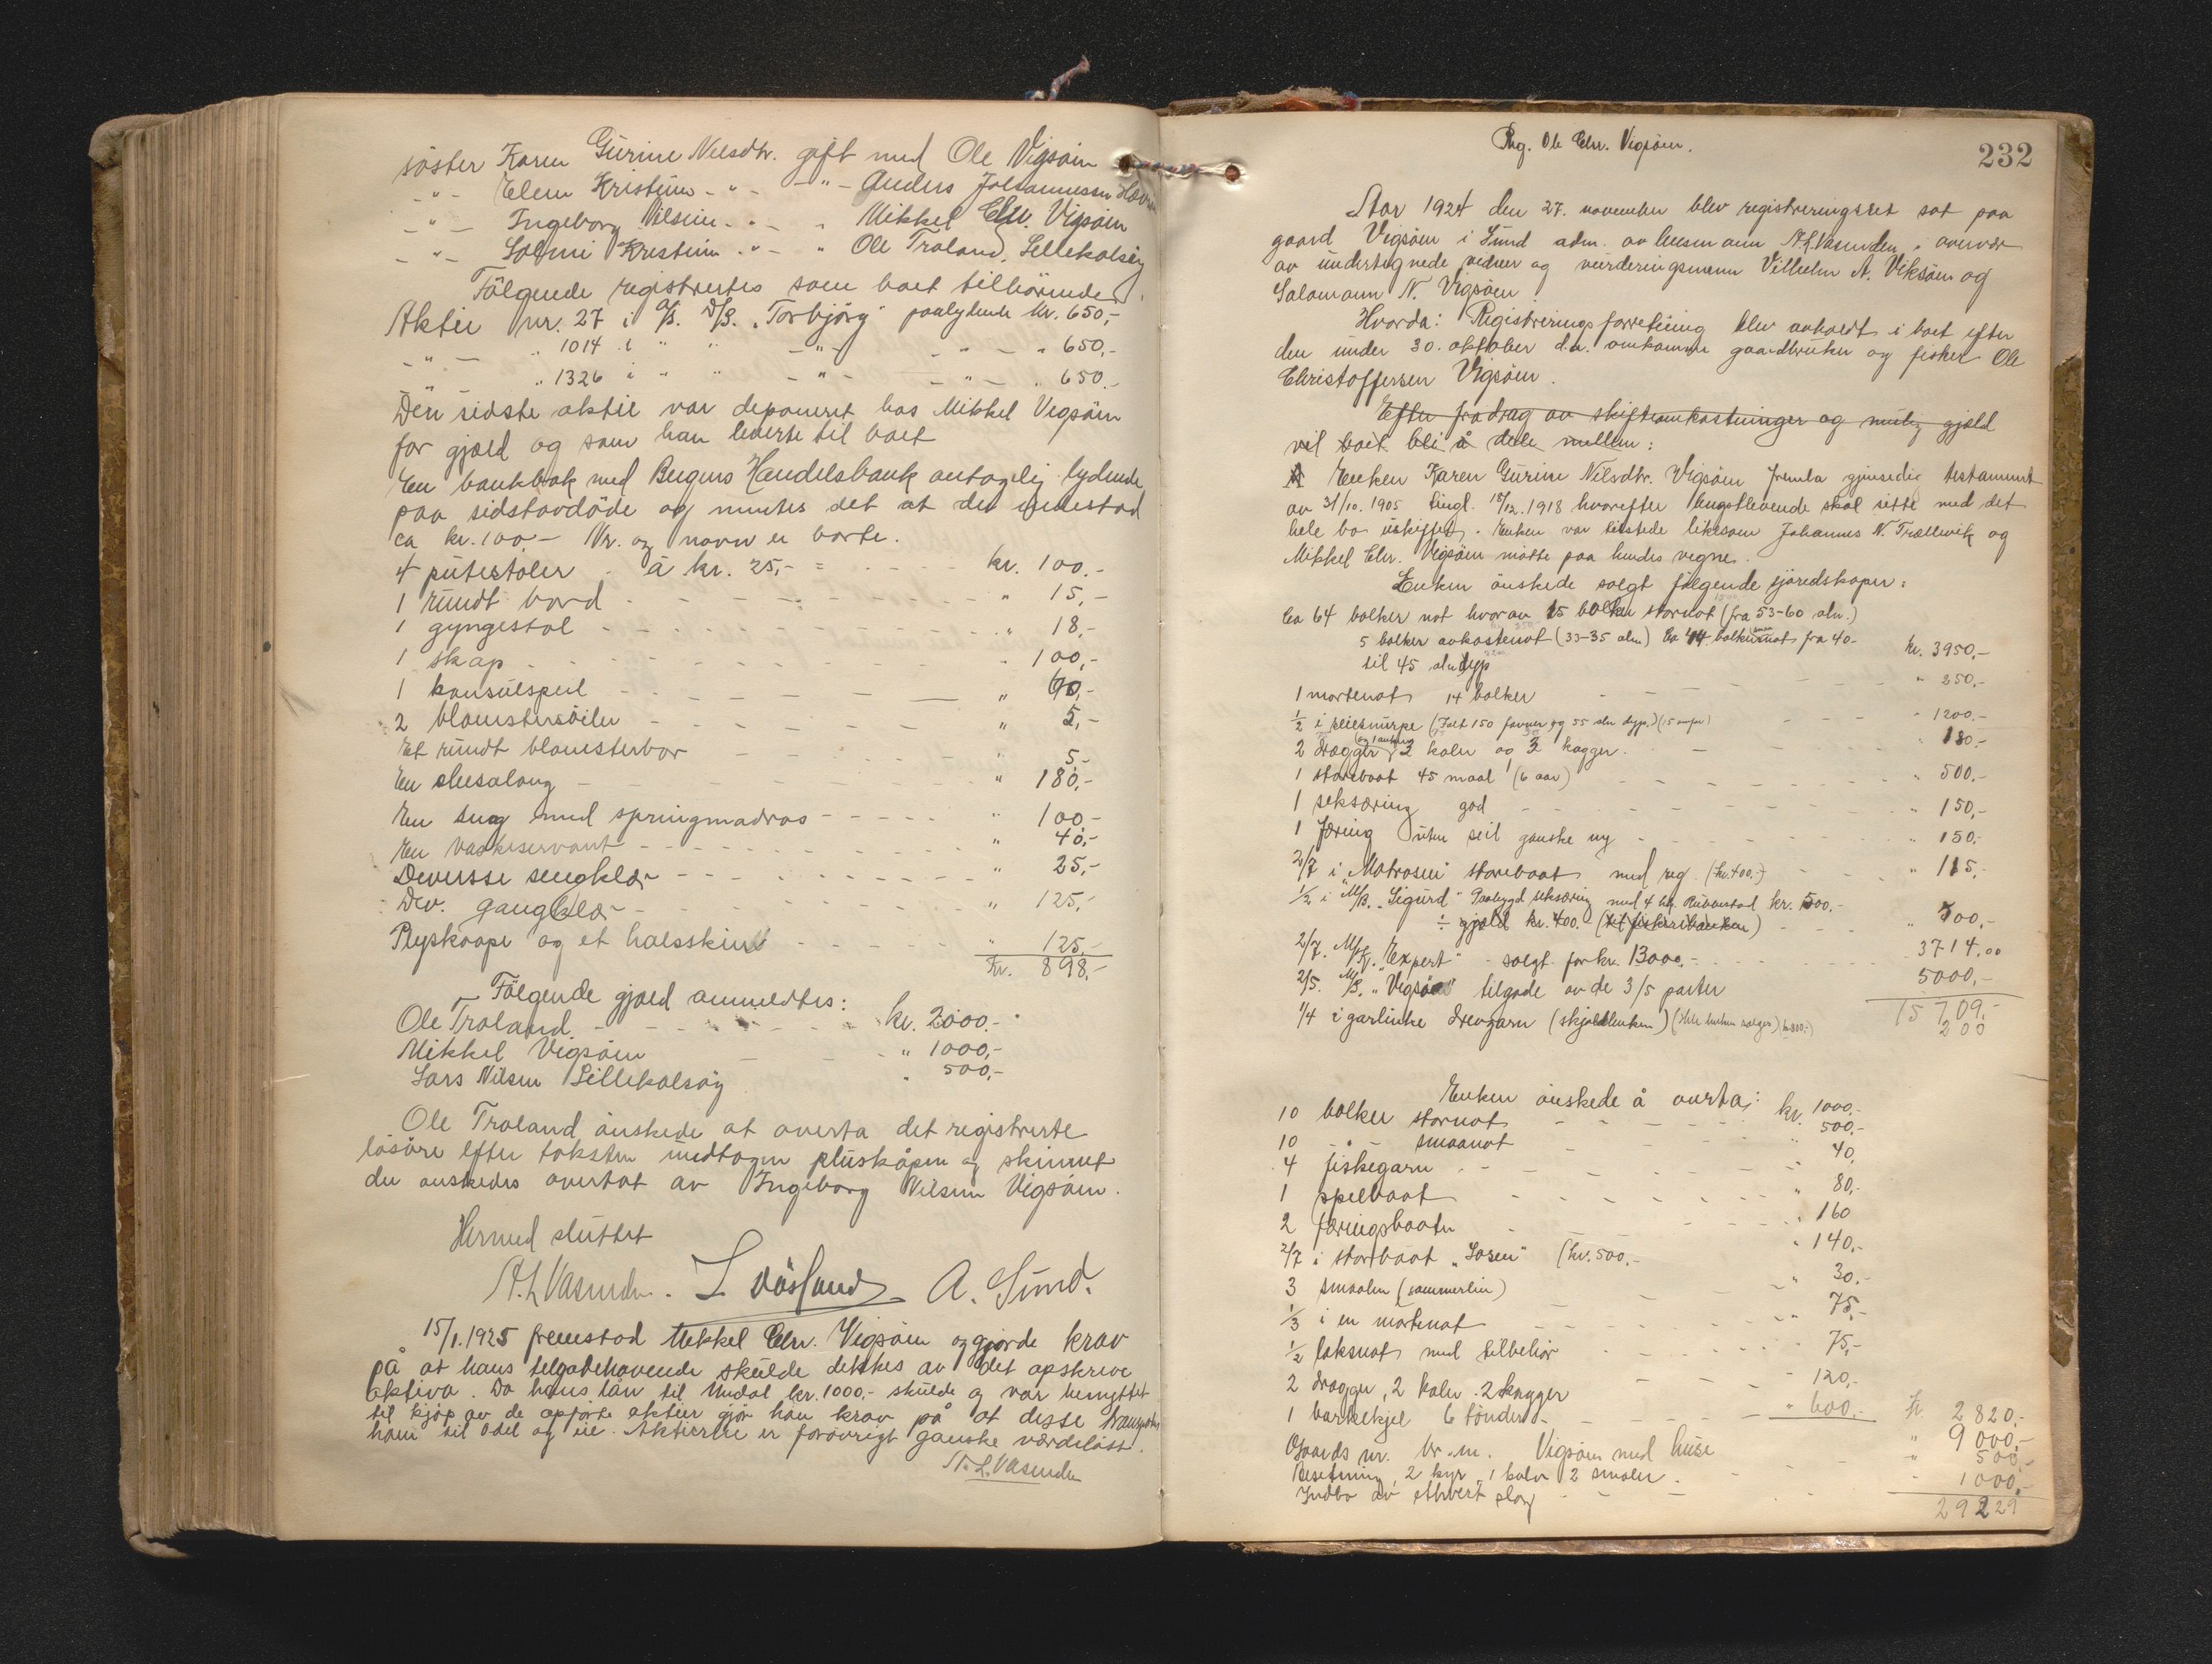 söster Karen Gurine Nilsdtr. gift med Ole Vigsöin
-"- Elen Kristine -"- -"- Anders Johannessen
-"- Ingeborg Nilsine -"- " Mikkel Chr. Vigsöin
-"- Kristine -"- " Ole Troland, Lillekalsöy
Fölgende registrertes som boet tilhörende.
Aktie nr. 27 i A/S. D/S. "Torbjörg" paalydende kr. 650,-
-"- " 1014 i " " -"- -"- " 650,-
-"- " 1326 i " " -"- -"- " 650.-
Den sidste aktie var deponeret hos Mikkel Vigsöin
for gjæld og som han leverte til boet
En bankbok med Bergens Handelsbank antagelig lydende
paa sidstavdöde og mentes det at der indestod
ca kr. 100,- Nr. og navn er borte.
4 putestoler à kr. 25,- = kr. 100.-
1 rundt bord " 15,-
1 gyngestol " 18,-
1 skap " 100,-
1 konsulspeil " 60,-
2 blomstersöiler " 5,-
Et rundt blomsterbor 5,-
En " 180,-
En seng med springmadras " 100-
En vaskeservant " 40,-
Diversse sengklær " 25,-
Div. gangklær " 125,-
Plyskaape og et halsskind " 125.-
Kr. 898,-
Fölgende gjæld anmeldtes:
Ole Troland kr. 2000.-
Mikkel Vigsöin " 1000,-
Lars Nilsen Lillekalsöy " 500,-
Ole Troland önskede at overta det registrerte
lösöre efter taksten undtagen pluskåpen og skinnet
der önskedes overtat av Ingeborg Nilsine Vigsöin.
Hermed sluttet
A. L. Vasenden. L Våsland A. Sund.
15/1.1925 fremstod Mikkel Chr. Vigsöin og gjorde krav
på at hans tilgodehavende skulde dekkes av det opskrevne
aktiva. Da hans lån til kr. 1000,- skulde og var benyttet
til kjöp av de opförte aktier gjör han krav på at disse
ham til odel og eie. Aktierne er forövrigt ganske værdilöse.
A. L. Vasenden
Reg. Ole Chr. Vigsöin.
232
Aar 1924 den 27. november blev registreringsret sat paa
gaard Vigsöin i Sund adm. av lensmann A.L. Vasenden i overvær
av undertegnede vidner og vurderingsmenn Vilhelm A. Viksöin og
Salamonn N. Vigsöin
Hvorda: Registreringsforretning blev avholdt i boet efter
den under 30. oktober d.a. omkomne gaardbruker og fisker Ole
Christoffersen Vigsöin.
Efter fradrag av skifteomkostninger og mulig gjæld
vil boet bli å dele mellem:
Enken Karen Gurine Nilsdtr. Vigsöin fremla gjensidig testament
av 31/10. 1905 tingl. 18/12. 1918 hvorefter lengstlevende skal sitte med det
hele bo uskiftet. Enken var tilstede likesom Johannes N. Trællevik og
Mikkel Chr. Vigsöin mötte paa hendes vegne.
Enken önskede solgt fölgende sjöredskaper:
Ca 64 bolker not hvorav 15 bolker stornot (fra 53-60 aln.)
5 bolker avkastenot (33-35 aln) Ca 44 bolker not fra 40-
til 45 aln dyp kr. 3950,-
1 mortenot 14 bolker " 250.-
1/2 i seiesnurpe (Tælt 150 favner og 55 aln dyp.) " 1200.-
2 dræggir 3 kaler og 3 kagger. " 180.-
1 storebaat 45 maal (6 aar) " 500.-
1 seksæring god " 150,-
1 færing uten seil ganske ny " 150.-
2/7 i "Matrosen" storebaat med reg. (kr. 400.-) " 115,-
1/2 i M/B. "Sigurd" seksæring med 4 hk. kr. 500.-
÷ gjæld kr. 400. " 100,-
2/7. M/K. "Expert" - solgt for kr. 13000.- 3714.00
2/5. M/S. "Vigsöin" tilgode av de 3/5 parter 5000,-
15709.-
1/4 i garlinke drivgarn 200
Enken önskede å overta:
10 bolker stornot kr. 1000,-
10 -"- smaanot 500,-
4 fiskegarn " 40,
1 spilbaat " 80,-
2 færingsbaater " 160
2/7 i storbaat "Losen" (kr. 500.- " 140,-
3 smaaler (sommerlin) " 30,-
1/3 i en mortenot " 75,-
1/2 laksnot med tilbehör 75,-
2 drægger, 2 kaler. 2 kagger 120,-
1 barkekjel 6 tönder " 600.- Kr 2820,-
Gaards nr. br. nr. Vigsöin med huse " 9000,-
Besetning, 2 kyr, 1 kalv 2 smaler. " 500,-
Indbo av ethvert slag " 1000,-
29229